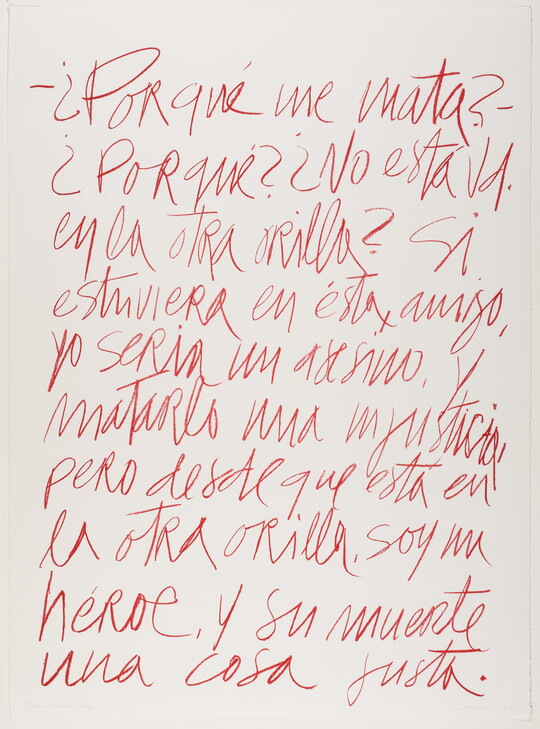 -¿Por qué me mata?-
¿Por qué? ¿No está Vd.
en la otra orilla? Si
estuviera en ésta, amigo,
yo seria un asesino, y
matarlo una injusticia,
pero desde que está en
la otra orilla, soy un
héroe, y su muerte
una cosa justa.